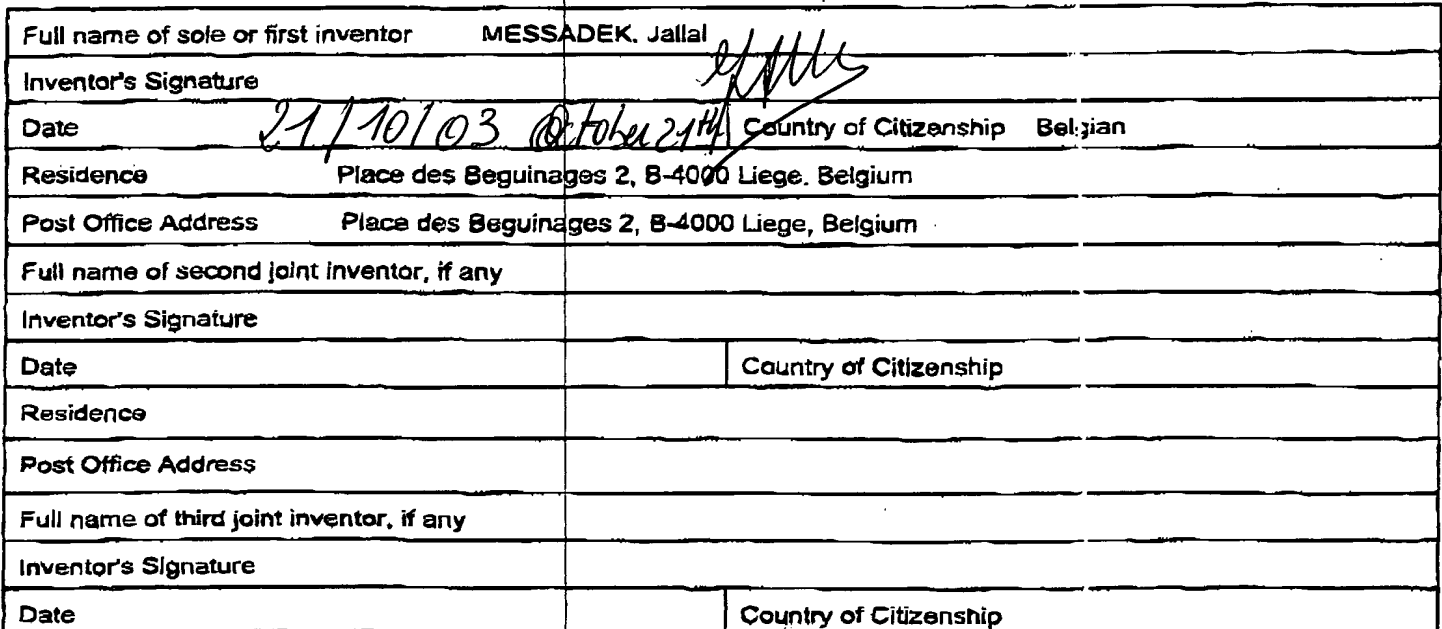 Full name of sole or first inventor MESSADEK. Jallal
Inventor's Signature
Date 21/10/03 October 21th Country of Citizenship Belgian
Residence Place des Beguinages 2, B-4000 Liege. Belgium
Post Office Address Place des Beguinages 2, B-4000 Liege, Belgium
Full name of second joint inventor, if any
Inventor's Signature
Date Country of Citizenship
Residence
Post Office Address
Full name of third joint inventor, if any
Inventor's Signature
Date Country of Citizenship